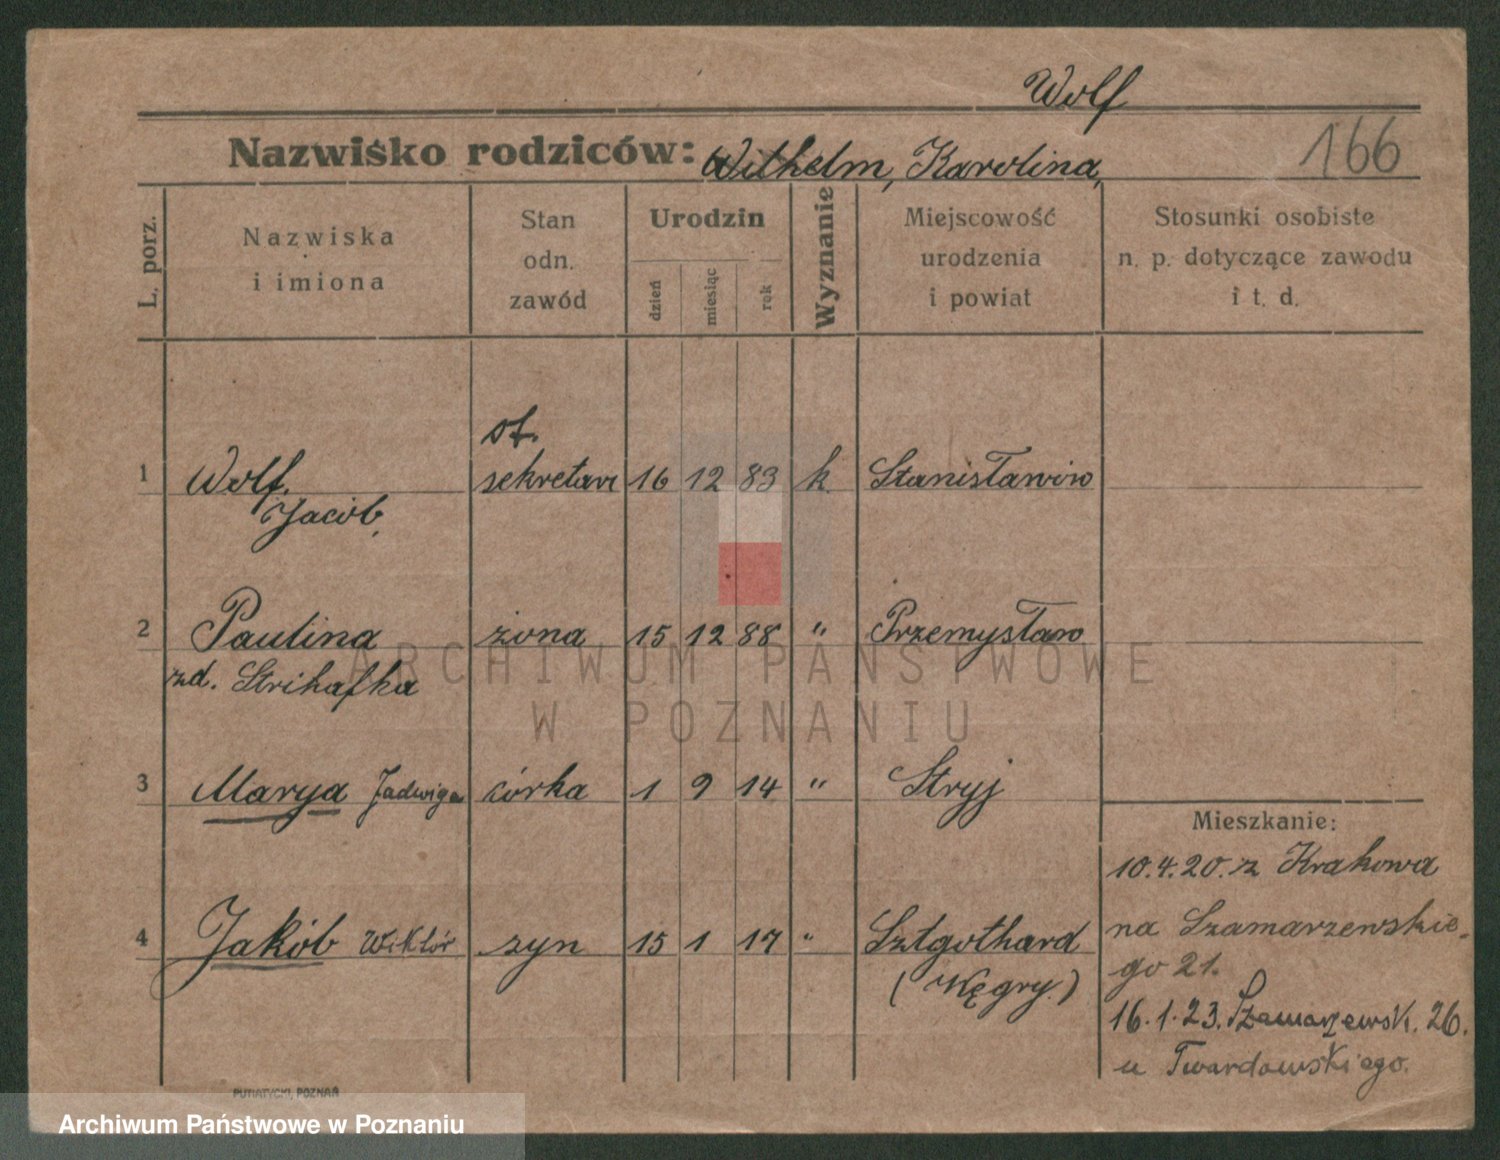 Wolf
Nazwisko rodziców: Wilhelm, Karolina,
166
L. porz.
Nazwiska
i imiona
Stan
odn.
zawód
Urodzin
dzień
miesiąc
rok
Wyznanie
Miejscowość
urodzenia
i powiat
Stosunki osobiste
n. p. dotyczące zawodu
i t. d.
st.
1 Wolf. sekretarz 16 12 83 k. Stanisławów
Jacób,
2 Paulina żona 15 12 88 " Przemysław
zd. Strihafka
3 Marya Jadwiga córka 1 9 14 " Stryj
Mieszkanie:
10.4.20. z Krakowa
na Szamarzewskie-
go 21.
4 Jakób Wiktór syn 15 1 17 " Sztgothard
(Węgry.)
16.1.23. Szamarzewsk. 26.
u Twardowskiego.
PUTIATYCKI, POZNAŃ
ARCHIWUM PAŃSTWOWE
W POZNANIU
Archiwum Państwowe w Poznaniu